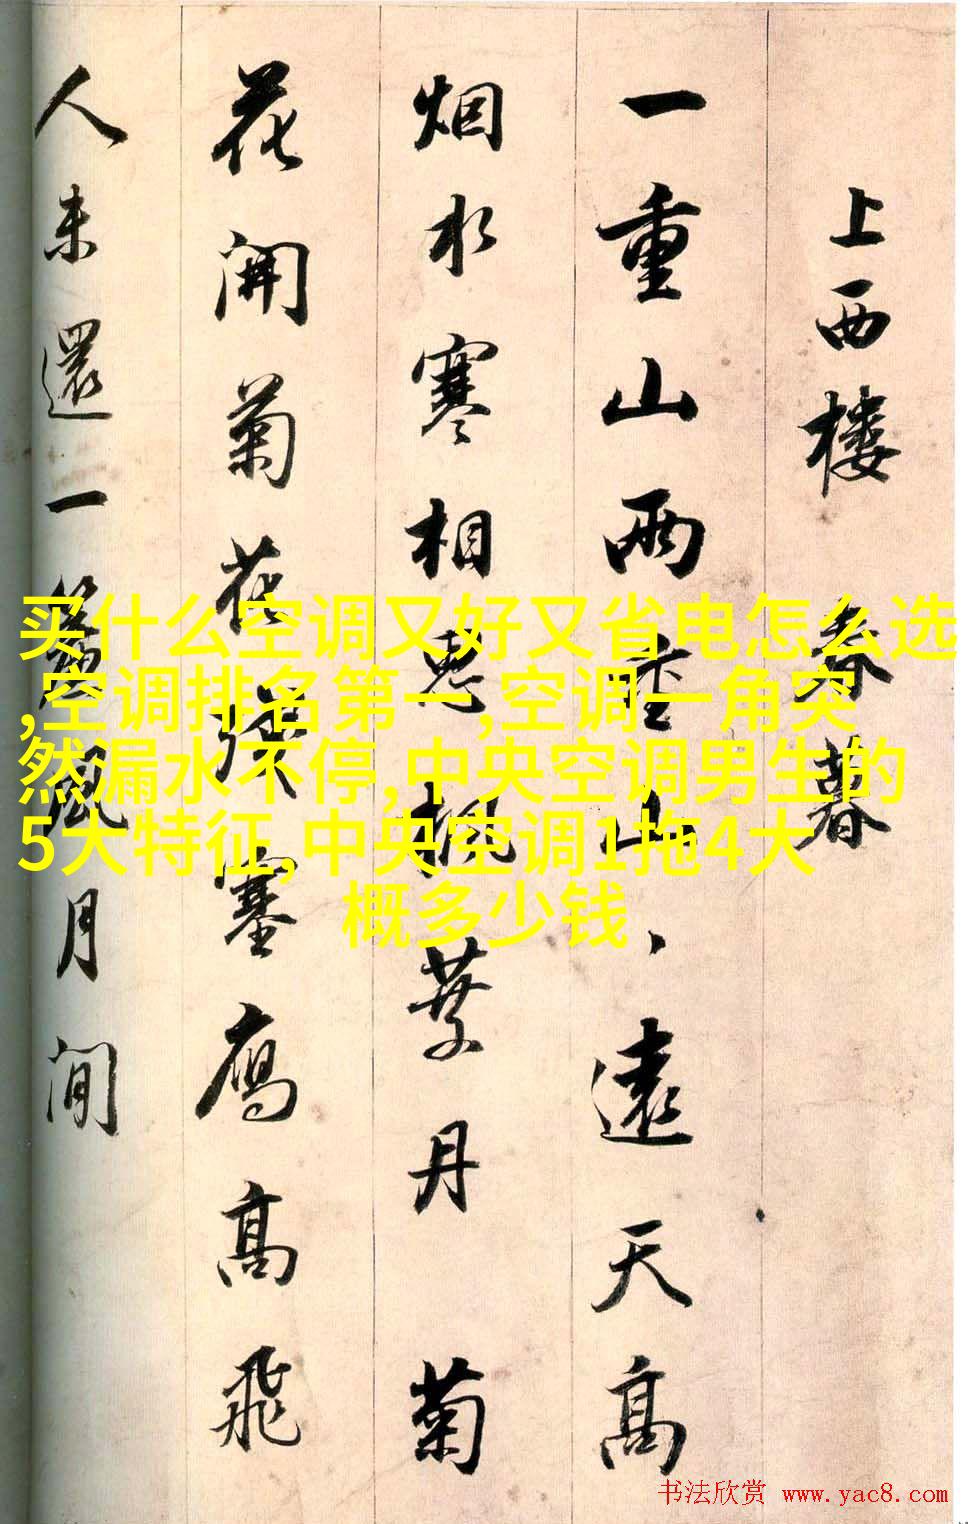 上西楼 春暮
一重山兩重山、遠天高
烟水寒相思楓葉丹菊
花開菊花殘塞鴈高飛
人未還一簾風月閒
买什么空调又好又省电怎么选
,空调排名第一,空调一角突
然漏水不停,中央空调男生的
5大特征,中央空调1拖4大
概多少钱
书法欣赏 www.yac8.com